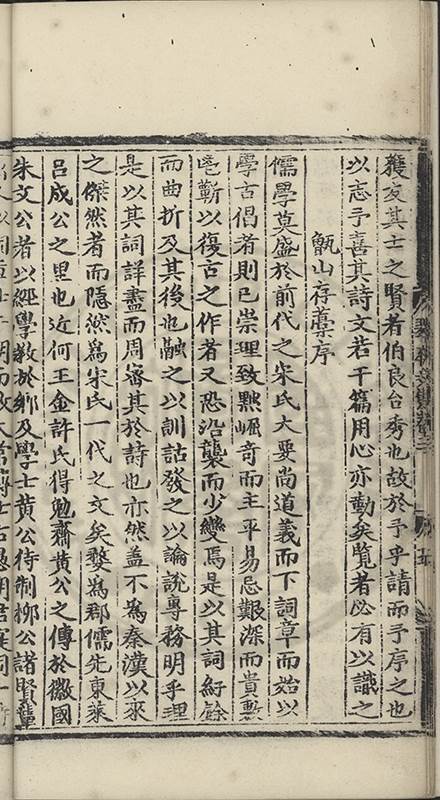 獲友其士之賢者伯良台秀也故於予乎請而予序之也
以志予喜其詩文若干篇用心亦勤矣覽者必有以識之
甑山存藁序
儒學莫盛於前代之宋氏大要尚道義而下詞章而始以
學古倡者則已崇理致黜崛奇而主平易忌艱深而貴敷
鬯蘄以復古之作者又恐沿襲而少變焉是以其詞紆餘
而曲折及其後也融之以訓詁發之以論說專務明乎理
是以其詞詳盡而周審其於詩也亦然盖不為秦漢以來
之傑然者而隱然為宋氏一代之文矣婺為郡儒先東萊
呂成公之里也近何王金許氏得勉齋黃公之傳於徽國
朱文公者以經學教於鄉及學士黃公待制柳公諸賢輩